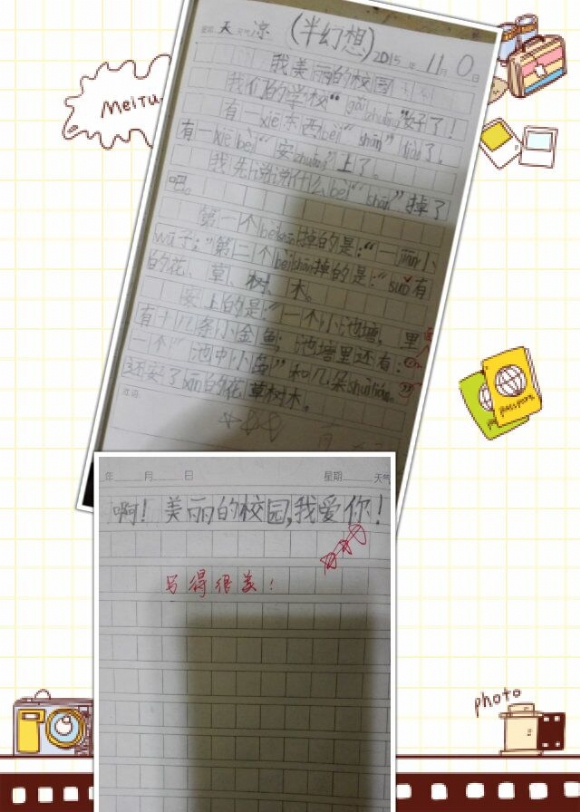 MeiTu
天 凉 (半幻想) 2015年11月 0日
我美丽的校园
我们的学校“gǎi zhuāng”好了！
有一xiē东西bèi“shān”diào了。
有一xiē bèi“安zhuāng”上了。
我先说说什么bèi“shān”掉了
吧。
第一个bèi shān掉的是：“一jiān小
wū子；”第二个bèi shān掉的是：“suǒ有
的花、草、树、木。
安上的是：“一个小池塘，里
有十几条小金鱼；池塘里还有：
一个“池中小岛”和几朵shuì lián。”
还安了xīn的花草树木。
年 月 日 星期 天气
啊！美丽的校园，我爱你！
写得很美！
passport
photo